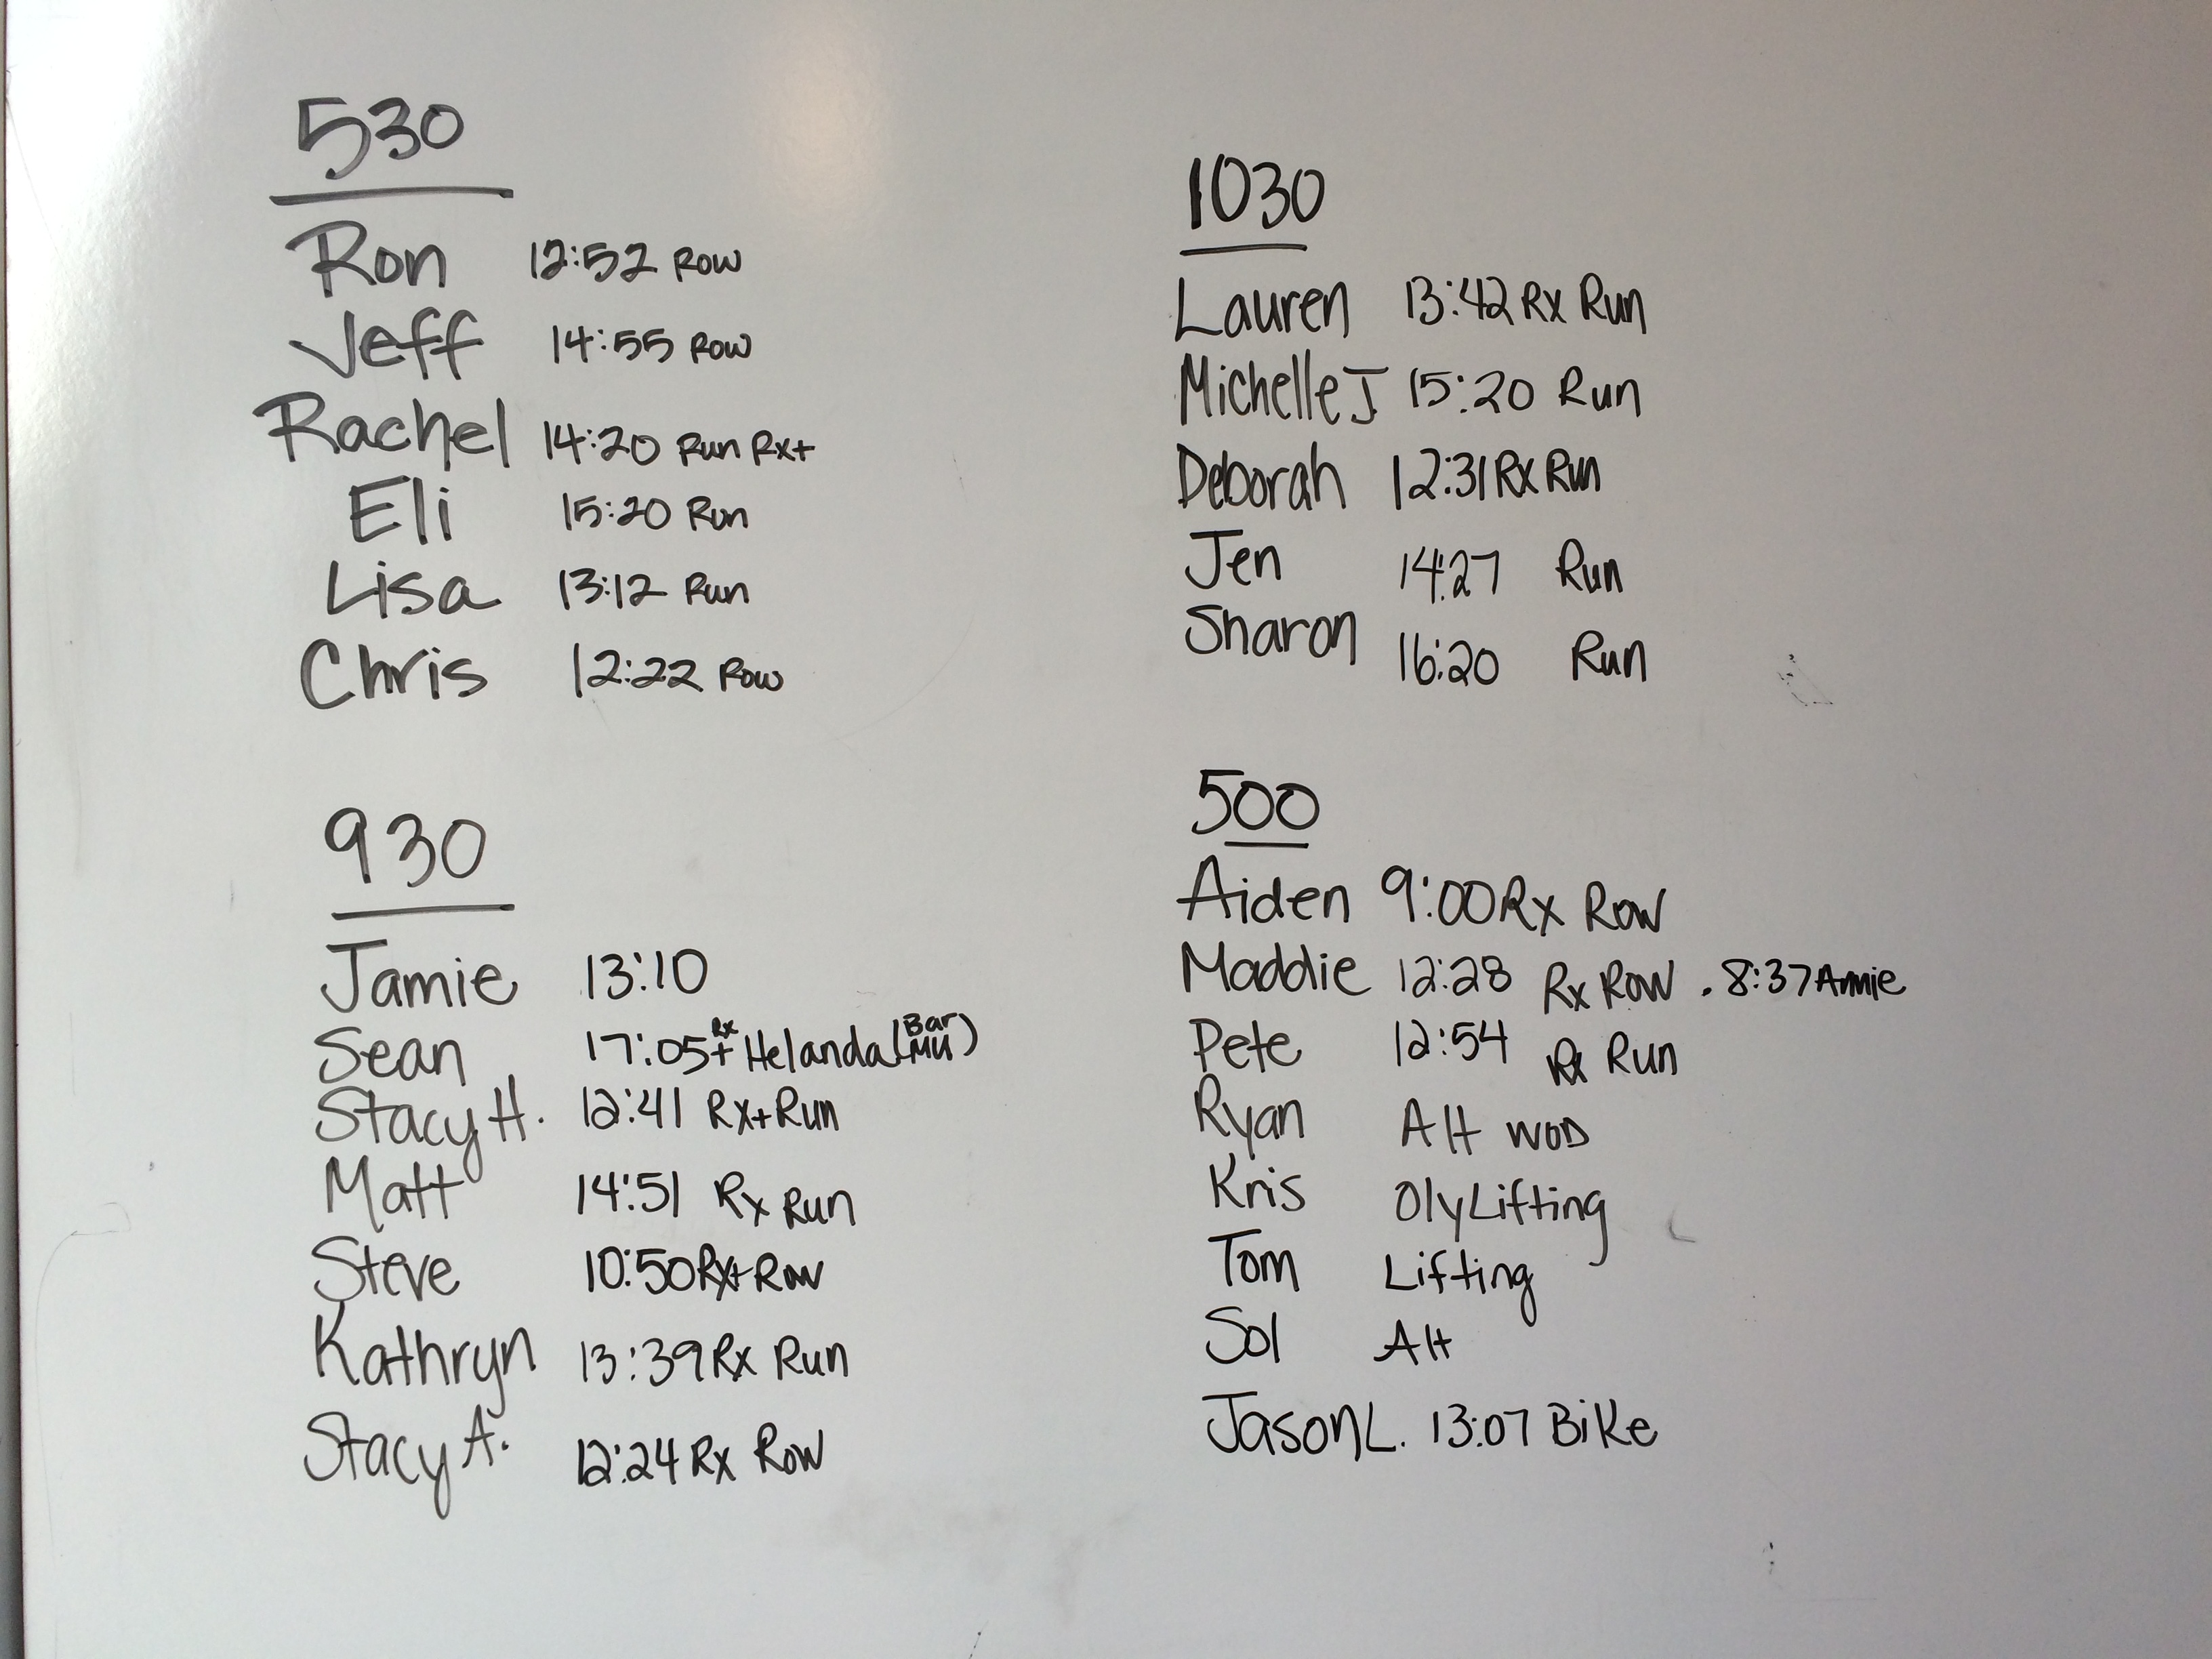 530
Ron 12:52 Row
Jeff 14:55 Row
Rachel 14:20 Run Rx+
Eli 15:20 Run
Lisa 13:12 Run
Chris 12:22 Row
930
Jamie 13:10
Sean 17:05 Rx+ Helanda (Bar MU)
Stacy H. 12:41 Rx+ Run
Matt 14:51 Rx Run
Steve 10:50 Rx+ Row
Kathryn 13:39 Rx Run
Stacy A. 12:24 Rx Row
1030
Lauren 13:42 Rx Run
Michelle J 15:20 Run
Deborah 12:31 Rx Run
Jen 14:27 Run
Sharon 16:20 Run
500
Aiden 9:00 Rx Row
Maddie 12:28 Rx Row . 8:37 Annie
Pete 12:54 Rx Run
Ryan Alt WOD
Kris Oly Lifting
Tom Lifting
Sol Alt
Jason L. 13:07 Bike